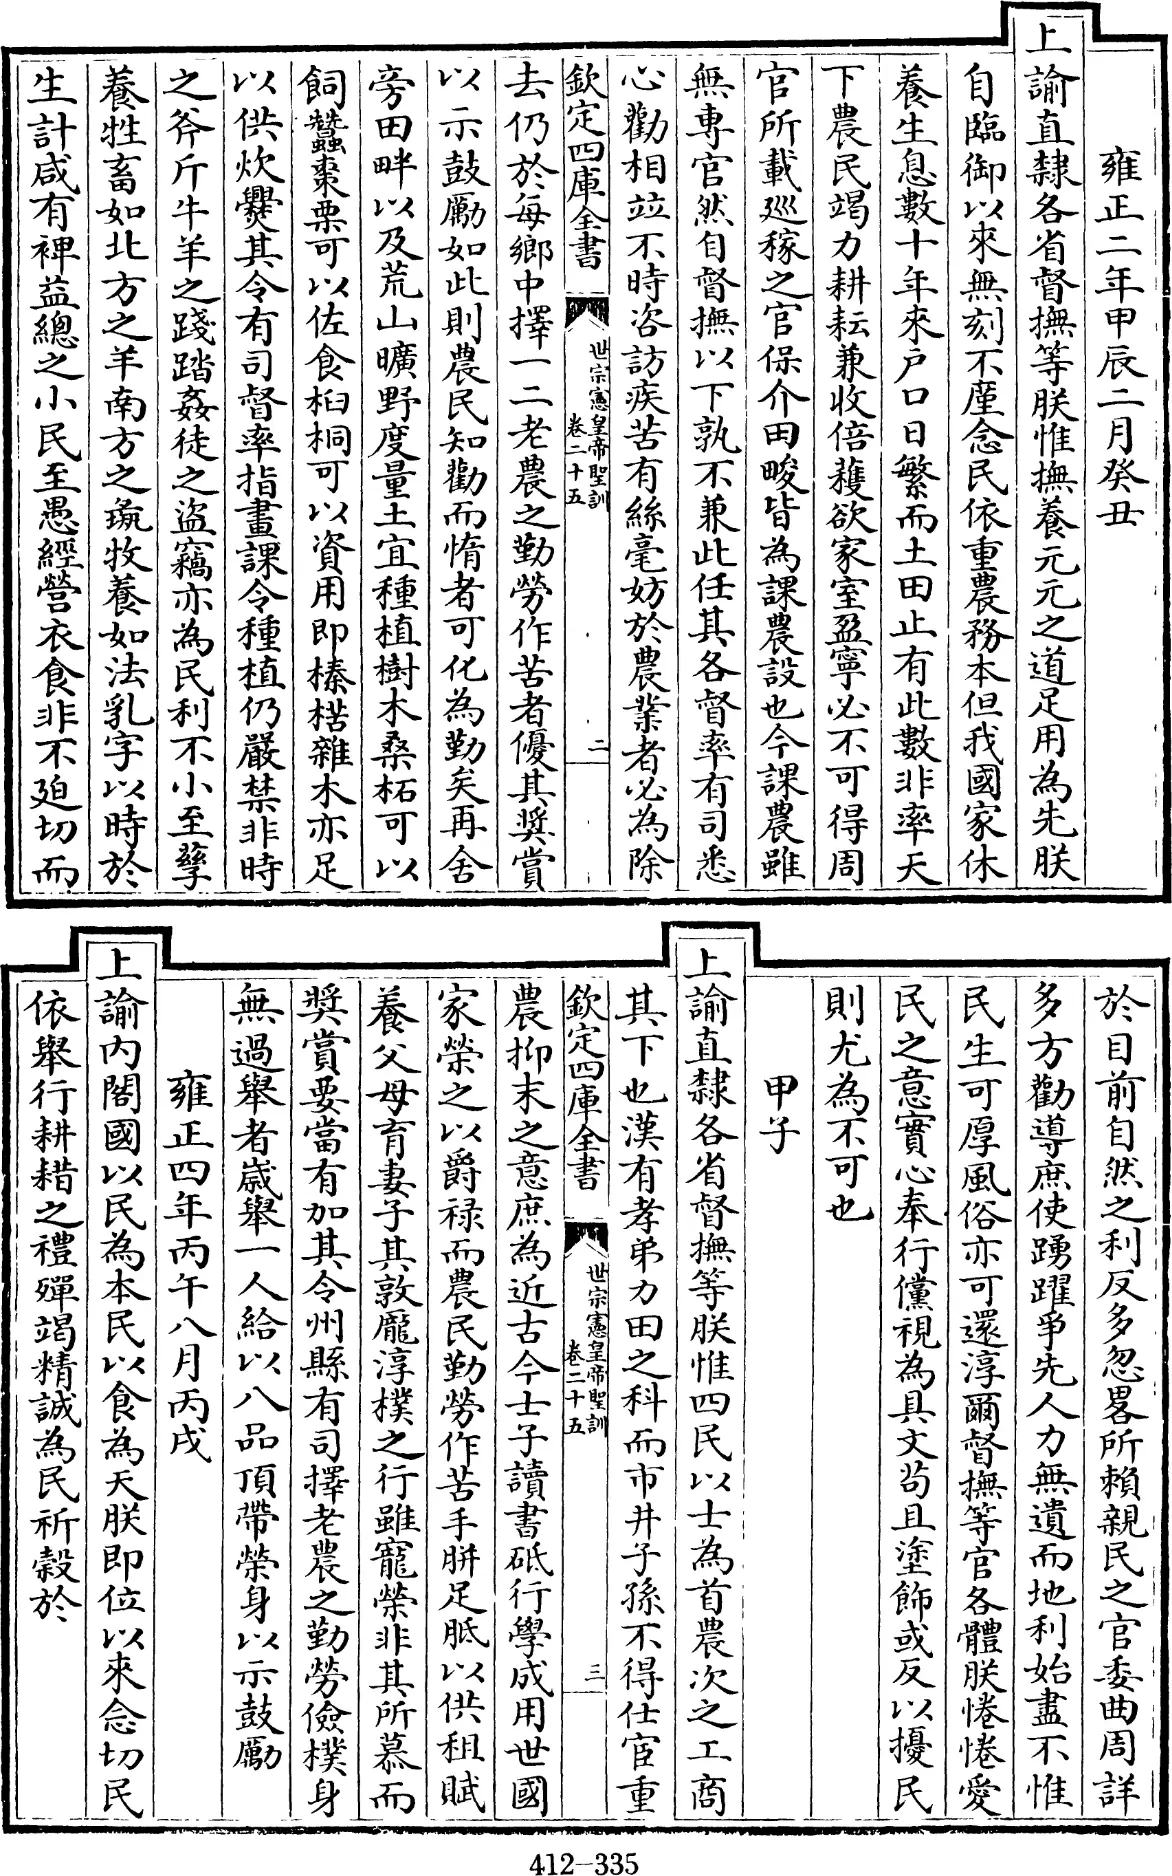 雍正二年甲辰二月癸丑
上諭直隸各省督撫等朕惟撫養元元之道足用為先朕
自臨御以來無刻不廑念民依重農務本但我國家休
養生息數十年來戶口日繁而土田止有此數非率天
下農民竭力耕耘兼收倍穫欲家室盈寧必不可得周
官所載廵稼之官保介田畯皆為課農設也今課農雖
無專官然自督撫以下孰不兼此任其各督率有司悉
心勸相竝不時咨訪疾苦有絲毫妨於農業者必為除
欽定四庫全書
世宗憲皇帝聖訓
卷二十五
二
去仍於每鄉中擇一二老農之勤勞作苦者優其奬賞
以示鼓厲如此則農民知勸而惰者可化為勤矣再舍
旁田畔以及荒山曠野度量土宜種植樹木桑柘可以
飼蠶棗栗可以佐食桕桐可以資用即榛楛雜木亦足
以供炊爨其令有司督率指畫課令種植仍嚴禁非時
之斧斤牛羊之踐踏姦徒之盜竊亦為民利不小至孳
養牲畜如北方之羊南方之彘牧養如法乳字以時於
生計咸有裨益總之小民至愚經營衣食非不廹切而
於目前自然之利反多忽畧所賴親民之官委曲周詳
多方勸導庶使踴躍爭先人力無遺而地利始盡不惟
民生可厚風俗亦可還淳爾督撫等官各體朕惓惓愛
民之意實心奉行儻視為具文苟且塗飾或反以擾民
則尤為不可也
甲子
上諭直隸各省督撫等朕惟四民以士為首農次之工商
其下也漢有孝弟力田之科而市井子孫不得仕宦重
欽定四庫全書
世宗憲皇帝聖訓
卷二十五
三
農抑末之意庶為近古今士子讀書砥行學成用世國
家榮之以爵禄而農民勤勞作苦手胼足胝以供租賦
養父母育妻子其敦龎淳樸之行雖寵榮非其所慕而
奬賞要當有加其令州縣有司擇老農之勤勞儉樸身
無過舉者歲舉一人給以八品頂帶榮身以示鼓厲
雍正四年丙午八月丙戌
上諭內閣國以民為本民以食為天朕即位以來念切民
依舉行耕耤之禮殫竭精誠為民祈穀於
412-335